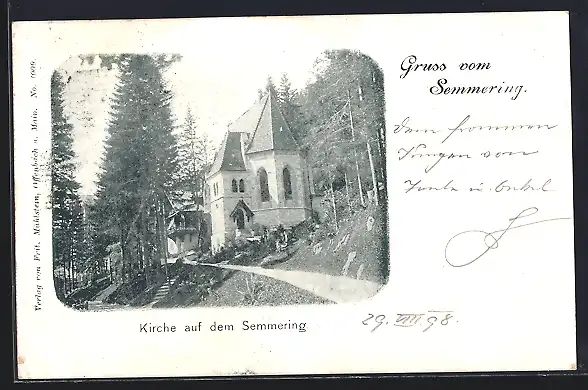 Gruss vom
Semmering.
Dem frommen
Jungen von
Tante u. Onkel
Kirche auf dem Semmering
29. VIII 98.
Verlag von Frit. Mühlstein, Offenbach a. Main. No.